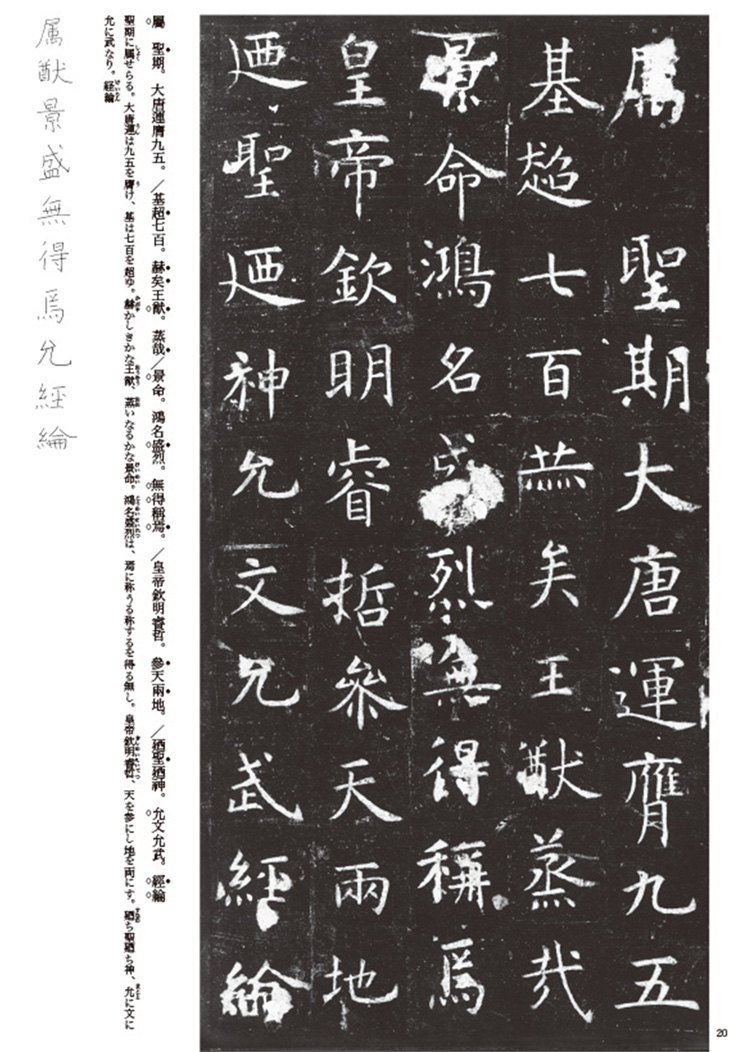 属 聖期大唐運膺九五
基超七百赫矣王猷蒸哉
景命鴻名盛烈無得稱焉
皇帝欽明睿哲參天兩地
迺聖迺神允文允武經綸
屬 聖期。大唐運膺九五。／基超七百。赫矣王猷。蒸哉／景命。鴻名盛烈。無得稱焉。／皇帝欽明睿哲。參天兩地。／迺聖迺神。允文允武。經綸
聖期に属せらる。大唐運は九五を膺け、基は七百を超ゆ。赫かしきかな王猷、蒸いなるかな景命。鴻名盛烈は、焉に称うる称するを得る無し。皇帝欽明睿哲、天を参にし地を両にす。廼ち聖廼ち神、允に文に
允に武なり。経綸
属猷景盛無得焉允經綸
20